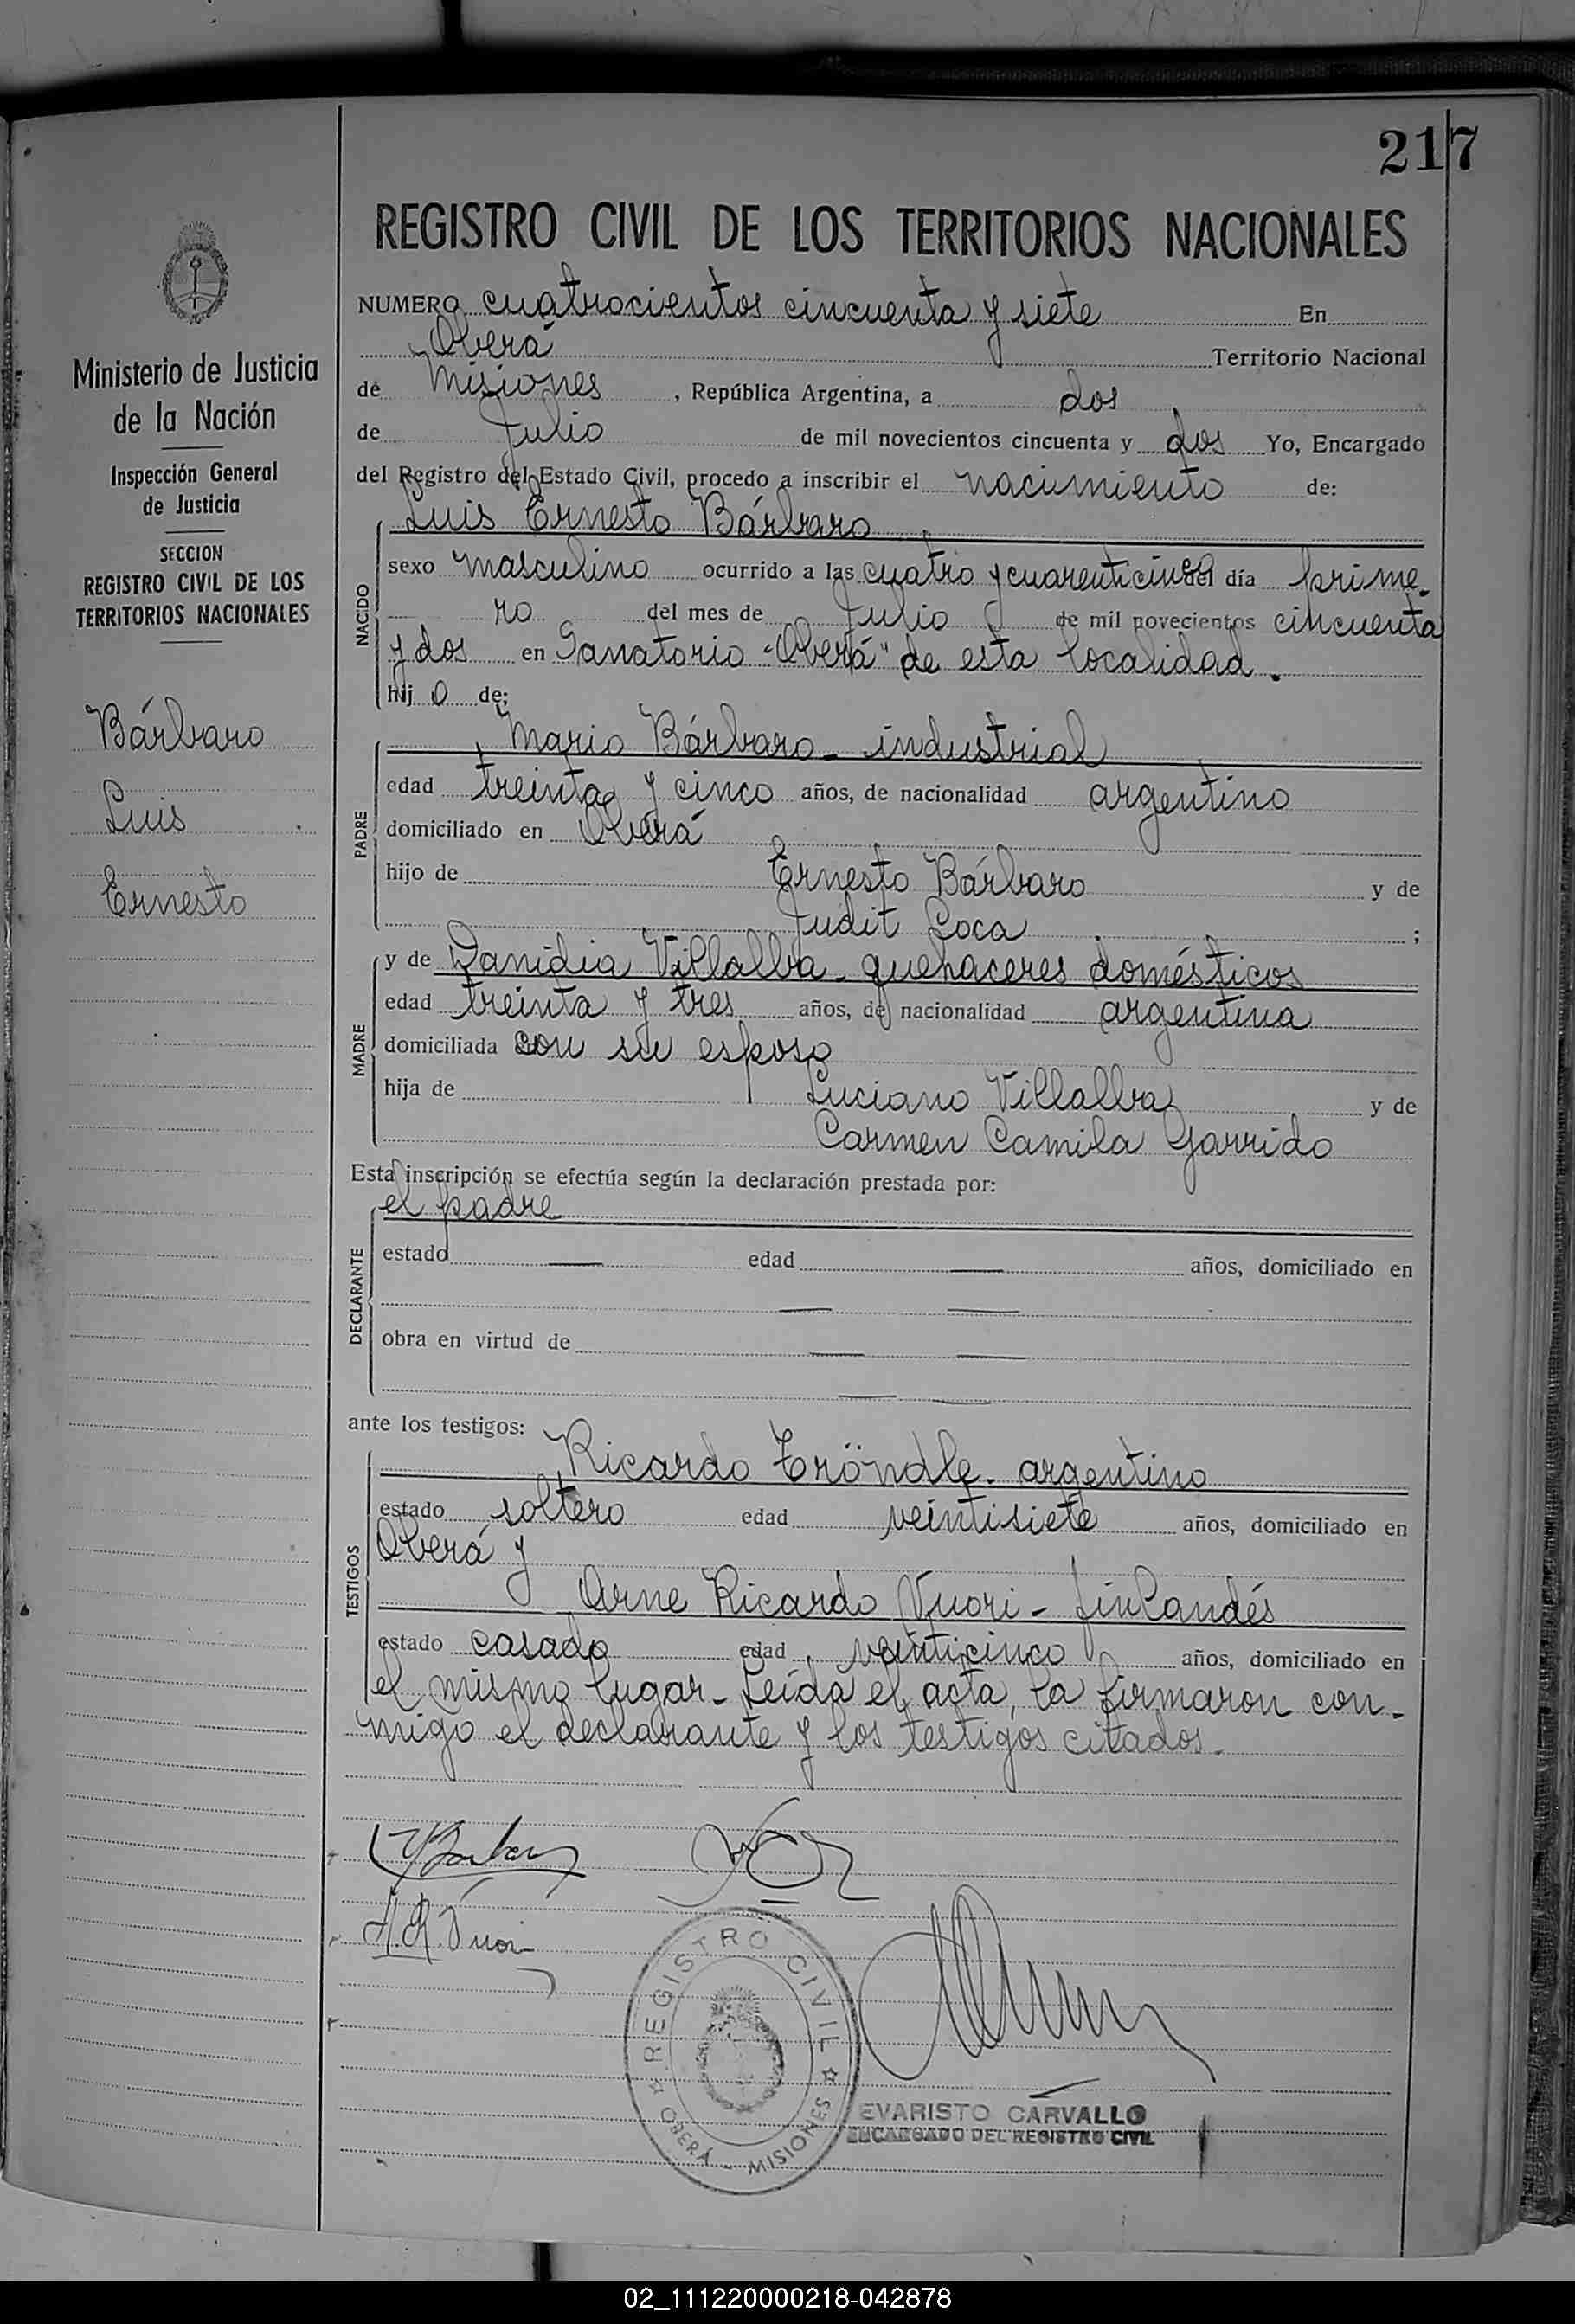 217
REGISTRO CIVIL DE LOS TERRITORIOS NACIONALES
Ministerio de Justicia
de la Nación
Inspección General
de Justicia
SECCION
REGISTRO CIVIL DE LOS
TERRITORIOS NACIONALES
Bárbaro
Luis
Ernesto
NUMERO cuatrocientos cincuenta y siete En
Oberá Territorio Nacional
de Misiones, República Argentina, a dos
de Julio de mil novecientos cincuenta y dos Yo, Encargado
del Registro del Estado Civil, procedo a inscribir el nacimiento de:
NACIDO
Luis Ernesto Bárbaro
sexo masculino ocurrido a las cuatro y cuarenticinco del día prime-
ro del mes de Julio de mil novecientos cincuenta
y dos en Sanatorio "Oberá" de esta localidad.
hij o de:
PADRE
Mario Bárbaro - industrial
edad treinta y cinco años, de nacionalidad argentino
domiciliado en Oberá
hijo de Ernesto Bárbaro y de
Judit Loca ;
MADRE
y de Danidia Villalba - quehaceres domésticos
edad treinta y tres años, de nacionalidad argentina
domiciliada con su esposo
hija de Luciano Villalba y de
Carmen Camila Garrido
Esta inscripción se efectúa según la declaración prestada por:
DECLARANTE
el padre
estado edad años, domiciliado en
obra en virtud de
ante los testigos:
TESTIGOS
Ricardo Tröndle - argentino
estado soltero edad veintisiete años, domiciliado en
Oberá y
Arne Ricardo Vuori - finlandés
estado casado edad veinticinco años, domiciliado en
el mismo lugar - Leída el acta, la firmaron con-
migo el declarante y los testigos citados.
A. R. Vuori
REGISTRO CIVIL
OBERÁ - MISIONES
EVARISTO CARVALLO
ENCARGADO DEL REGISTRO CIVIL
02_111220000218-042878